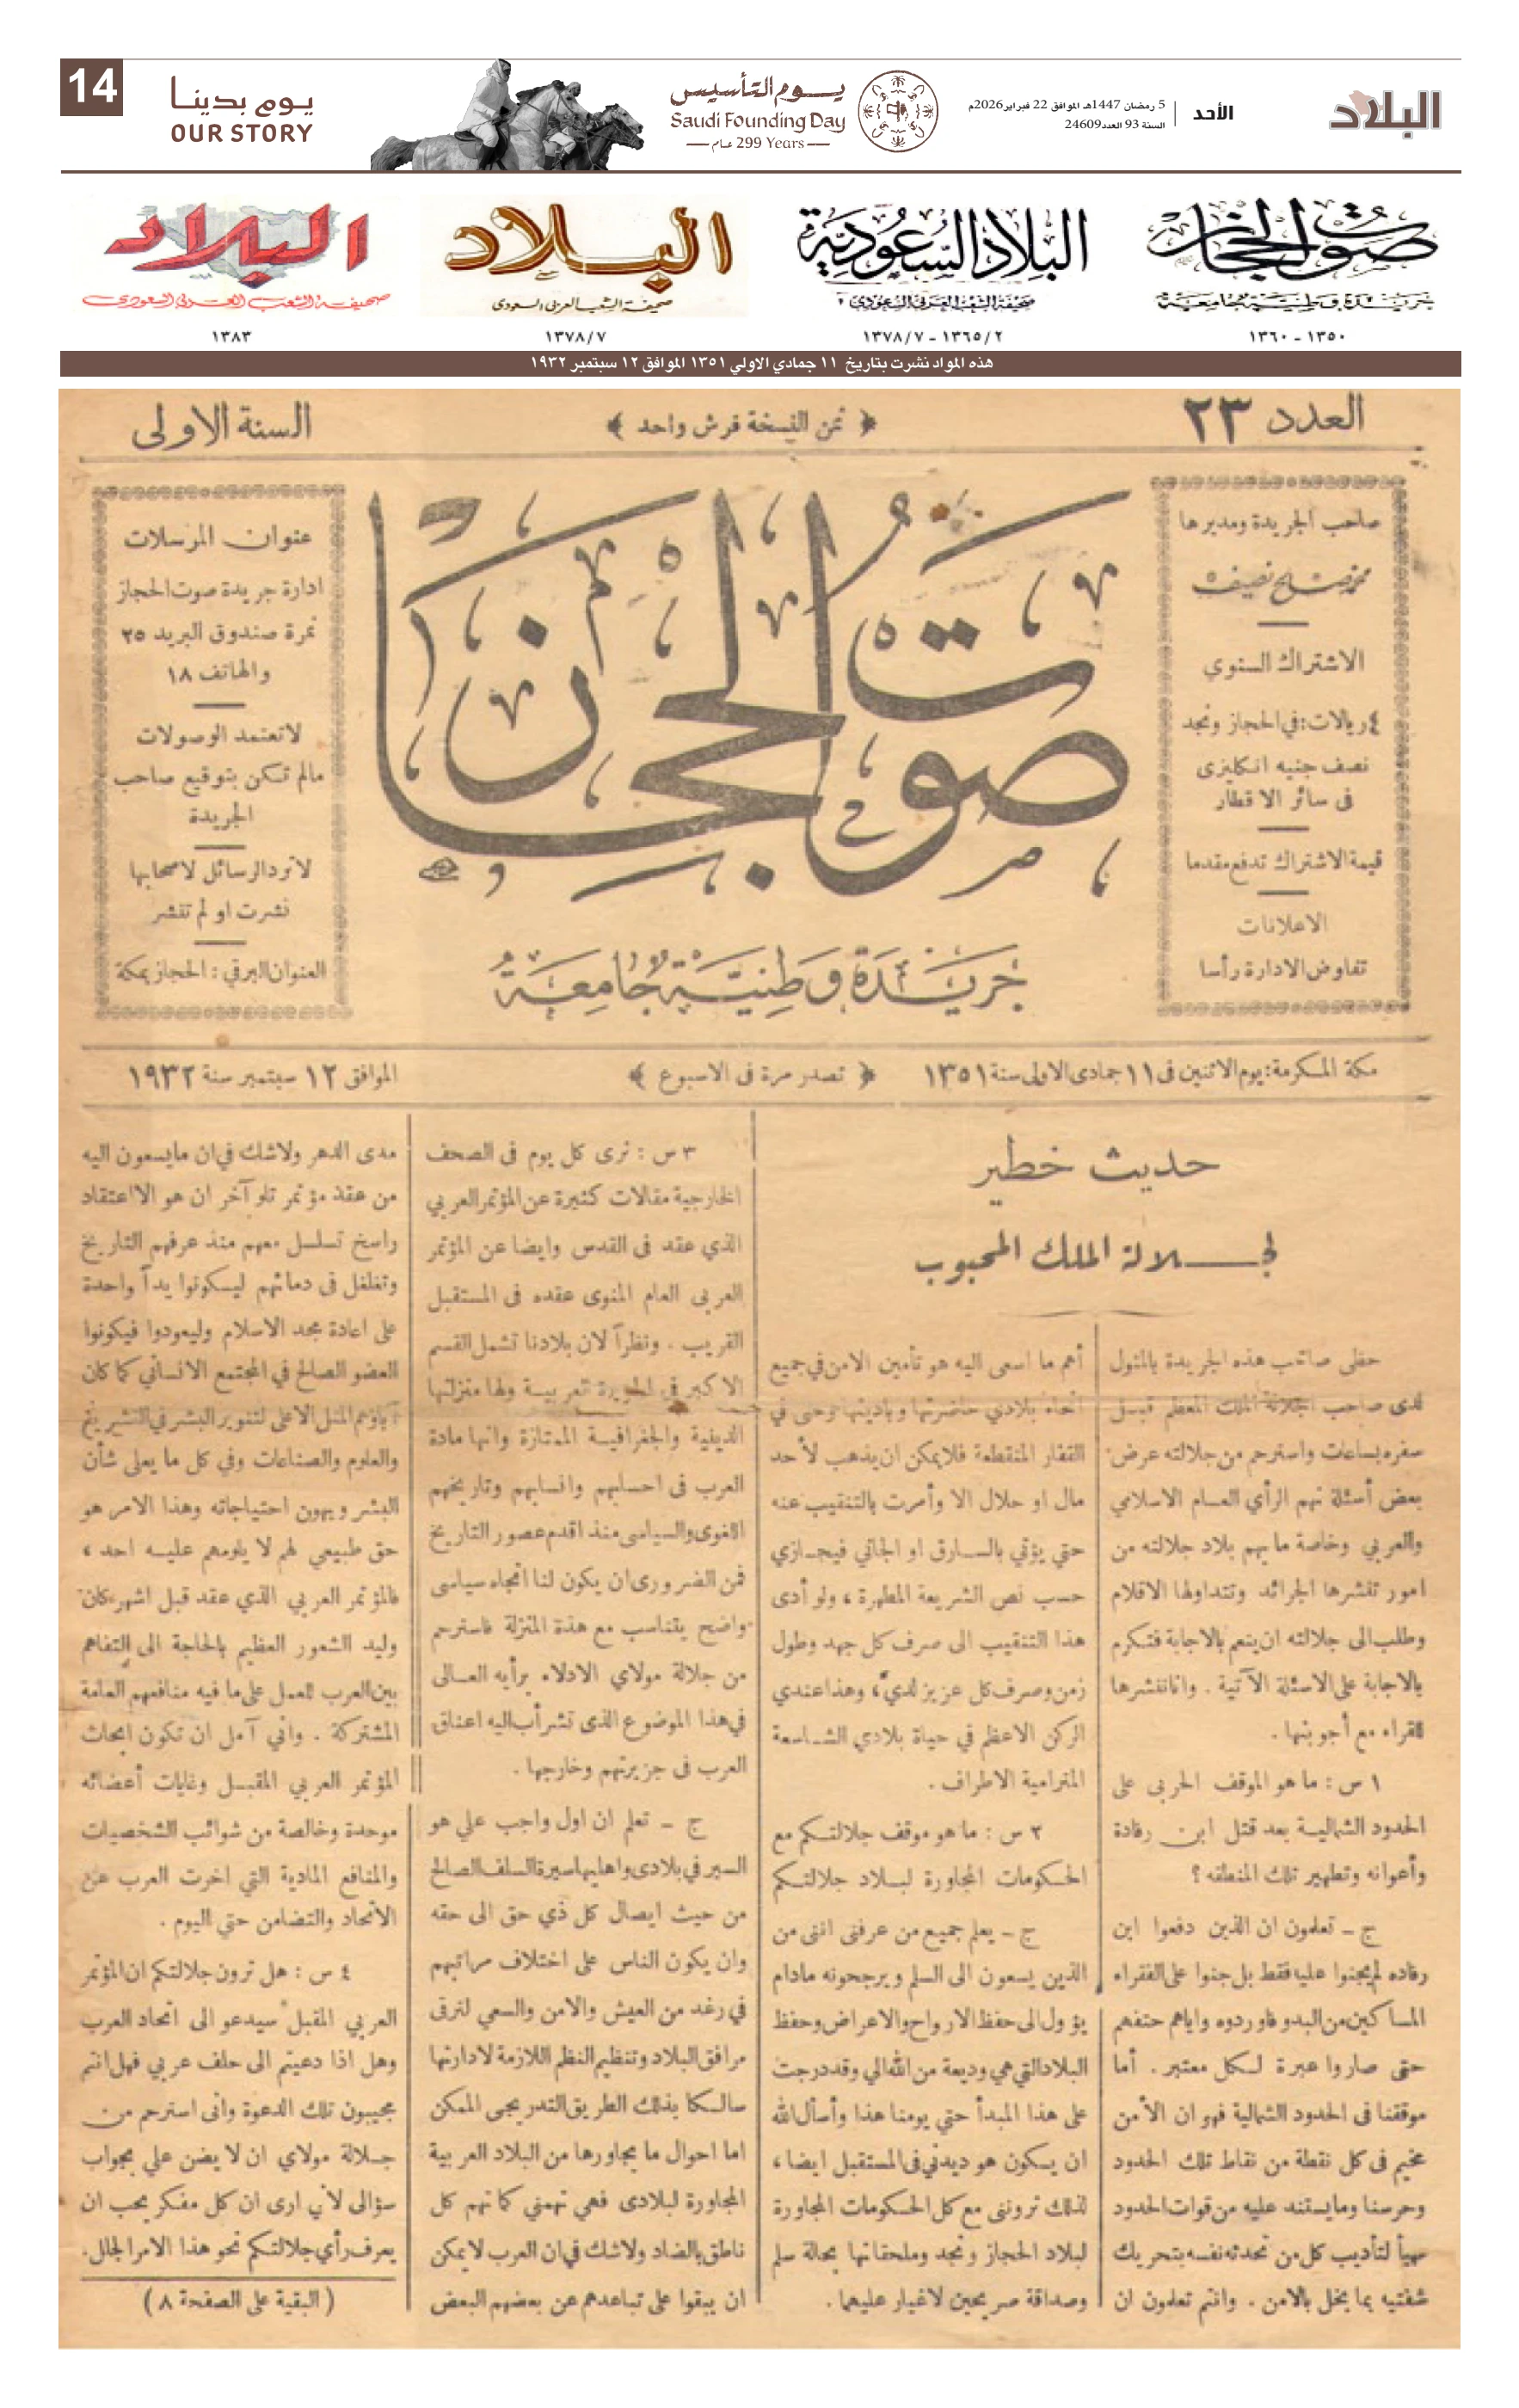 البلاد
الأحد
5 رمضان 1447هـ الموافق 22 فبراير 2026م
السنة 93 العدد 24609
يوم التأسيس
Saudi Founding Day
299 Years عام
يوم بدينا
OUR STORY
14
صوت الحجاز
جريدة وطنية جامعة
١٣٥٠ - ١٣٦٠
البلاد السعودية
صحيفة الشعب العربي السعودي
١٣٦٥/٢ - ١٣٧٨/٧
البلاد
صحيفة الشعب العربي السعودي
١٣٧٨/٧
البلاد
صحيفة الشعب العربي السعودي
١٣٨٣
هذه المواد نشرت بتاريخ ١١ جمادي الاولي ١٣٥١ الموافق ١٢ سبتمبر ١٩٣٢
العدد ٢٣
﴿ ثمن النسخة قرش واحد ﴾
السنة الاولى
صاحب الجريدة ومديرها
محمد صالح نصيف
الاشتراك السنوي
٤ ريالات: في الحجاز ونجد
نصف جنيه انكليزى
فى سائر الاقطار
قيمة الاشتراك تدفع مقدما
الاعلانات
تفاوض الادارة رأسا
صوت الحجاز
جريدة وطنية جامعة
عنوان المرسلات
ادارة جريدة صوت الحجاز
نمرة صندوق البريد ٢٥
والهاتف ١٨
لا تعتمد الوصولات
مالم تكن بتوقيع صاحب
الجريدة
لا ترد الرسائل لاصحابها
نشرت او لم تنشر
العنوان البرقي: الحجاز بمكة
مكة المكرمة: يوم الاثنين فى ١١ جمادى الاولى سنة ١٣٥١
﴿ تصدر مرة فى الاسبوع ﴾
الموافق ١٢ سبتمبر سنة ١٩٣٢
حديث خطير
لجلالة الملك المحبوب
حظى صاحب هذه الجريدة بالمثول
لدى صاحب الجلالة الملك المعظم قبل
سفره بساعات واسترحم من جلالته عرض
بعض أسئلة تهم الرأي العام الاسلامي
والعربي وخاصة ما يهم بلاد جلالته من
امور تنشرها الجرائد وتتداولها الاقلام
وطلب الى جلالته ان ينعم بالاجابة فتكرم
بالاجابة على الاسئلة الآتية . وانا ننشرها
للقراء مع أجوبتها .
١ س : ما هو الموقف الحربى على
الحدود الشمالية بعد قتل ابن رفادة
وأعوانه وتطهير تلك المنطقه ؟
ج - تعلمون ان الذين دفعوا ابن
رفاده لم يجنوا عليه فقط بل جنوا على الفقراء
المساكين من البدو فاوردوه واياهم حتفهم
حتى صاروا عبرة لكل معتبر . أما
موقفنا فى الحدود الشمالية فهو ان الأمن
مخيم فى كل نقطة من نقاط تلك الحدود
وحرسنا وما يستند عليه من قوات الحدود
مهيأ لتأديب كل من تحدثه نفسه بتحريك
شفتيه بما يخل بالامن . وانتم تعلمون ان
أهم ما اسعى اليه هو تأمين الامن في جميع
أنحاء بلادي حاضرتها وباديتها وحتى في
القفار المنقطعة فلا يمكن ان يذهب لأحد
مال او حلال الا وأمرت بالتنقيب عنه
حتي يؤتي بالسارق او الجاني فيجازي
حسب نص الشريعة المطهرة ، ولو أدى
هذا التنقيب الى صرف كل جهد وطول
زمن وصرف كل عزيز لدي ، وهذا عندي
الركن الاعظم في حياة بلادي الشاسعة
المترامية الاطراف .
٢ س : ما هو موقف جلالتكم مع
الحكومات المجاورة لبلاد جلالتكم
ج - يعلم جميع من عرفنى اننى من
الذين يسعون الى السلم ويرجحونه مادام
يؤول الى حفظ الارواح والاعراض وحفظ
البلاد التي هي وديعة من الله الي وقد درجت
على هذا المبدأ حتي يومنا هذا وأسأل الله
ان يكون هو ديدني فى المستقبل ايضا ،
لذلك تروننى مع كل الحكومات المجاورة
لبلاد الحجاز ونجد وملحقاتها بحالة سلم
وصداقة صريحين لا غبار عليهما .
٣ س : نرى كل يوم فى الصحف
الخارجية مقالات كثيرة عن المؤتمر العربي
الذي عقد فى القدس وايضا عن المؤتمر
العربى العام المنوى عقده فى المستقبل
القريب . ونظراً لان بلادنا تشمل القسم
الاكبر في الجزيرة العربية ولها منزلتها
الدينية والجغرافية الممتازة وانها مادة
العرب فى احسابهم وانسابهم وتاريخهم
اللغوى والسياسى منذ اقدم عصور التاريخ
فمن الضرورى ان يكون لنا اتجاه سياسى
واضح يتناسب مع هذة المنزلة فاسترحم
من جلالة مولاي الادلاء برأيه العالى
في هذا الموضوع الذى تشرأب اليه اعناق
العرب فى جزيرتهم وخارجها .
ج - تعلم ان اول واجب علي هو
السير في بلادى واهليها سيرة السلف الصالح
من حيث ايصال كل ذي حق الى حقه
وان يكون الناس على اختلاف مراتبهم
في رغد من العيش والامن والسعي لترقى
مرافق البلاد وتنظيم النظم اللازمة لادارتها
سالكا بذلك الطريق التدريجى الممكن
اما احوال ما يجاورها من البلاد العربية
المجاورة لبلادى فهي تهمني كما تهم كل
ناطق بالضاد ولا شك في ان العرب لا يمكن
ان يبقوا على تباعدهم عن بعضهم البعض
مدى الدهر ولا شك في ان ما يسعون اليه
من عقد مؤتمر تلو آخر ان هو الا اعتقاد
راسخ تسلسل معهم منذ عرفهم التاريخ
وتغلغل فى دمائهم ليكونوا يداً واحدة
على اعادة مجد الاسلام وليعودوا فيكونوا
العضو الصالح في المجتمع الانساني كما كان
آباؤهم المثل الاعلى لتنوير البشر في التشريع
والعلوم والصناعات وفي كل ما يعلى شأن
البشر ويهون احتياجاته وهذا الامر هو
حق طبيعي لهم لا يلومهم عليه احد ،
فالمؤتمر العربي الذي عقد قبل اشهر كان
وليد الشعور العظيم بالحاجة الى التفاهم
بين العرب للعمل على ما فيه منافعهم العامة
المشتركة . واني آمل ان تكون ابحاث
المؤتمر العربي المقبل وغايات أعضائه
موحدة وخالصة من شوائب الشخصيات
والمنافع المادية التي اخرت العرب عن
الاتحاد والتضامن حتي اليوم .
٤ س : هل ترون جلالتكم ان المؤتمر
العربي المقبل سيدعو الى اتحاد العرب
وهل اذا دعيتم الى حلف عربي فهل انتم
مجيبون تلك الدعوة وانى استرحم من
جلالة مولاي ان لا يضن علي بجواب
سؤالى لأني ارى ان كل مفكر يحب ان
يعرف رأي جلالتكم نحو هذا الامر الجلل .
( البقية على الصفحة ٨ )